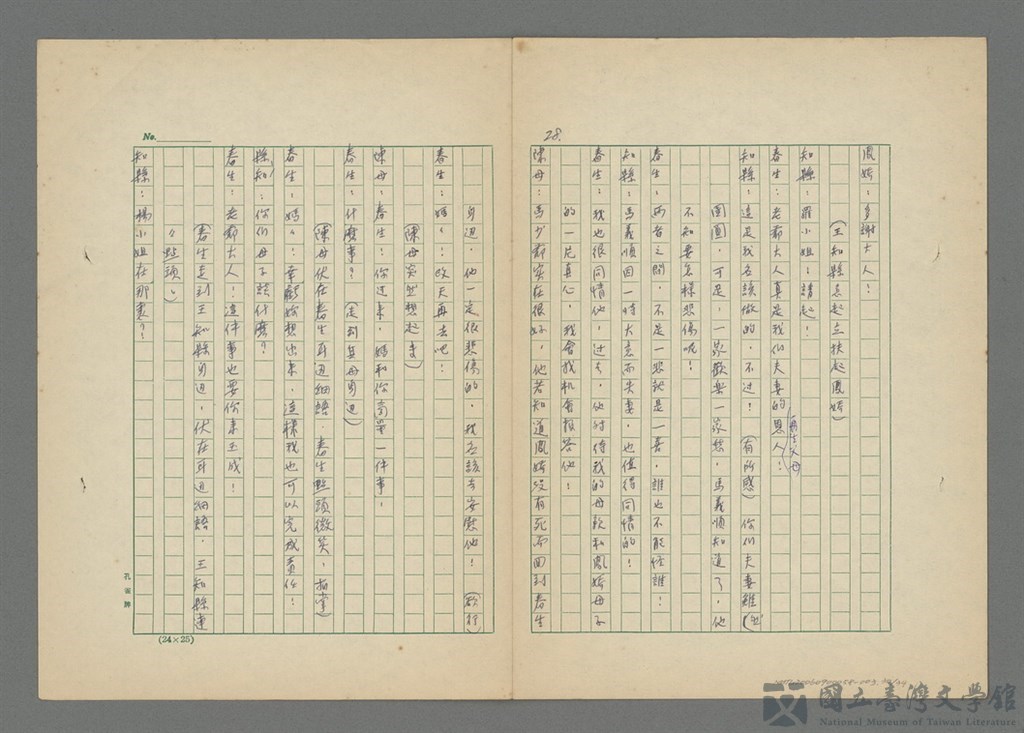 28.
鳳嬌：多謝大人！
（王知縣急起立扶起鳳嬌）
知縣：羅小姐！請起！
春生：老爺大人真是我们夫妻的恩人！
再生父母
知縣：這是我应該做的，不过！（有所感）你们夫妻雖（然）
團圓，可是，一家歡樂一家愁，馬義順知道了，他
不知要怎樣悲傷呢！
春生：兩者之間，不是一悲就是一喜，誰也不能怪誰！
知縣：馬義順因一時大意而失妻，也值得同情的！
春生：我也很同情他，过去，他对待我的母親和鳳嬌母子
的一片真心，我會找机會報答他！
陳母：馬少爺实在很好，他若知道鳳嬌没有死而回到春生
身边，他一定很悲傷的，我应該去安慰他！（欲行）
春生：媽媽：改天再去吧！
（陳母突然想起來）
陳母：春生：你过來，媽和你商量一件事，
春生：什麼事？（走到其母身边）
（陳母伏在春生耳边細語，春生點頭微笑，拍掌）
春生：媽媽：幸虧妳想出來，這樣我也可以完成責任！
縣知：你们母子談什麼？
春生：老爺大人！這件事也要你來玉成！
（春生走到王知縣身边，伏在耳边細語，王知縣連
々點頭。）
知縣：楊小姐在那裏？！
No.
(24×25)
孔雀牌
國立臺灣文學館
National Museum of Taiwan Literature